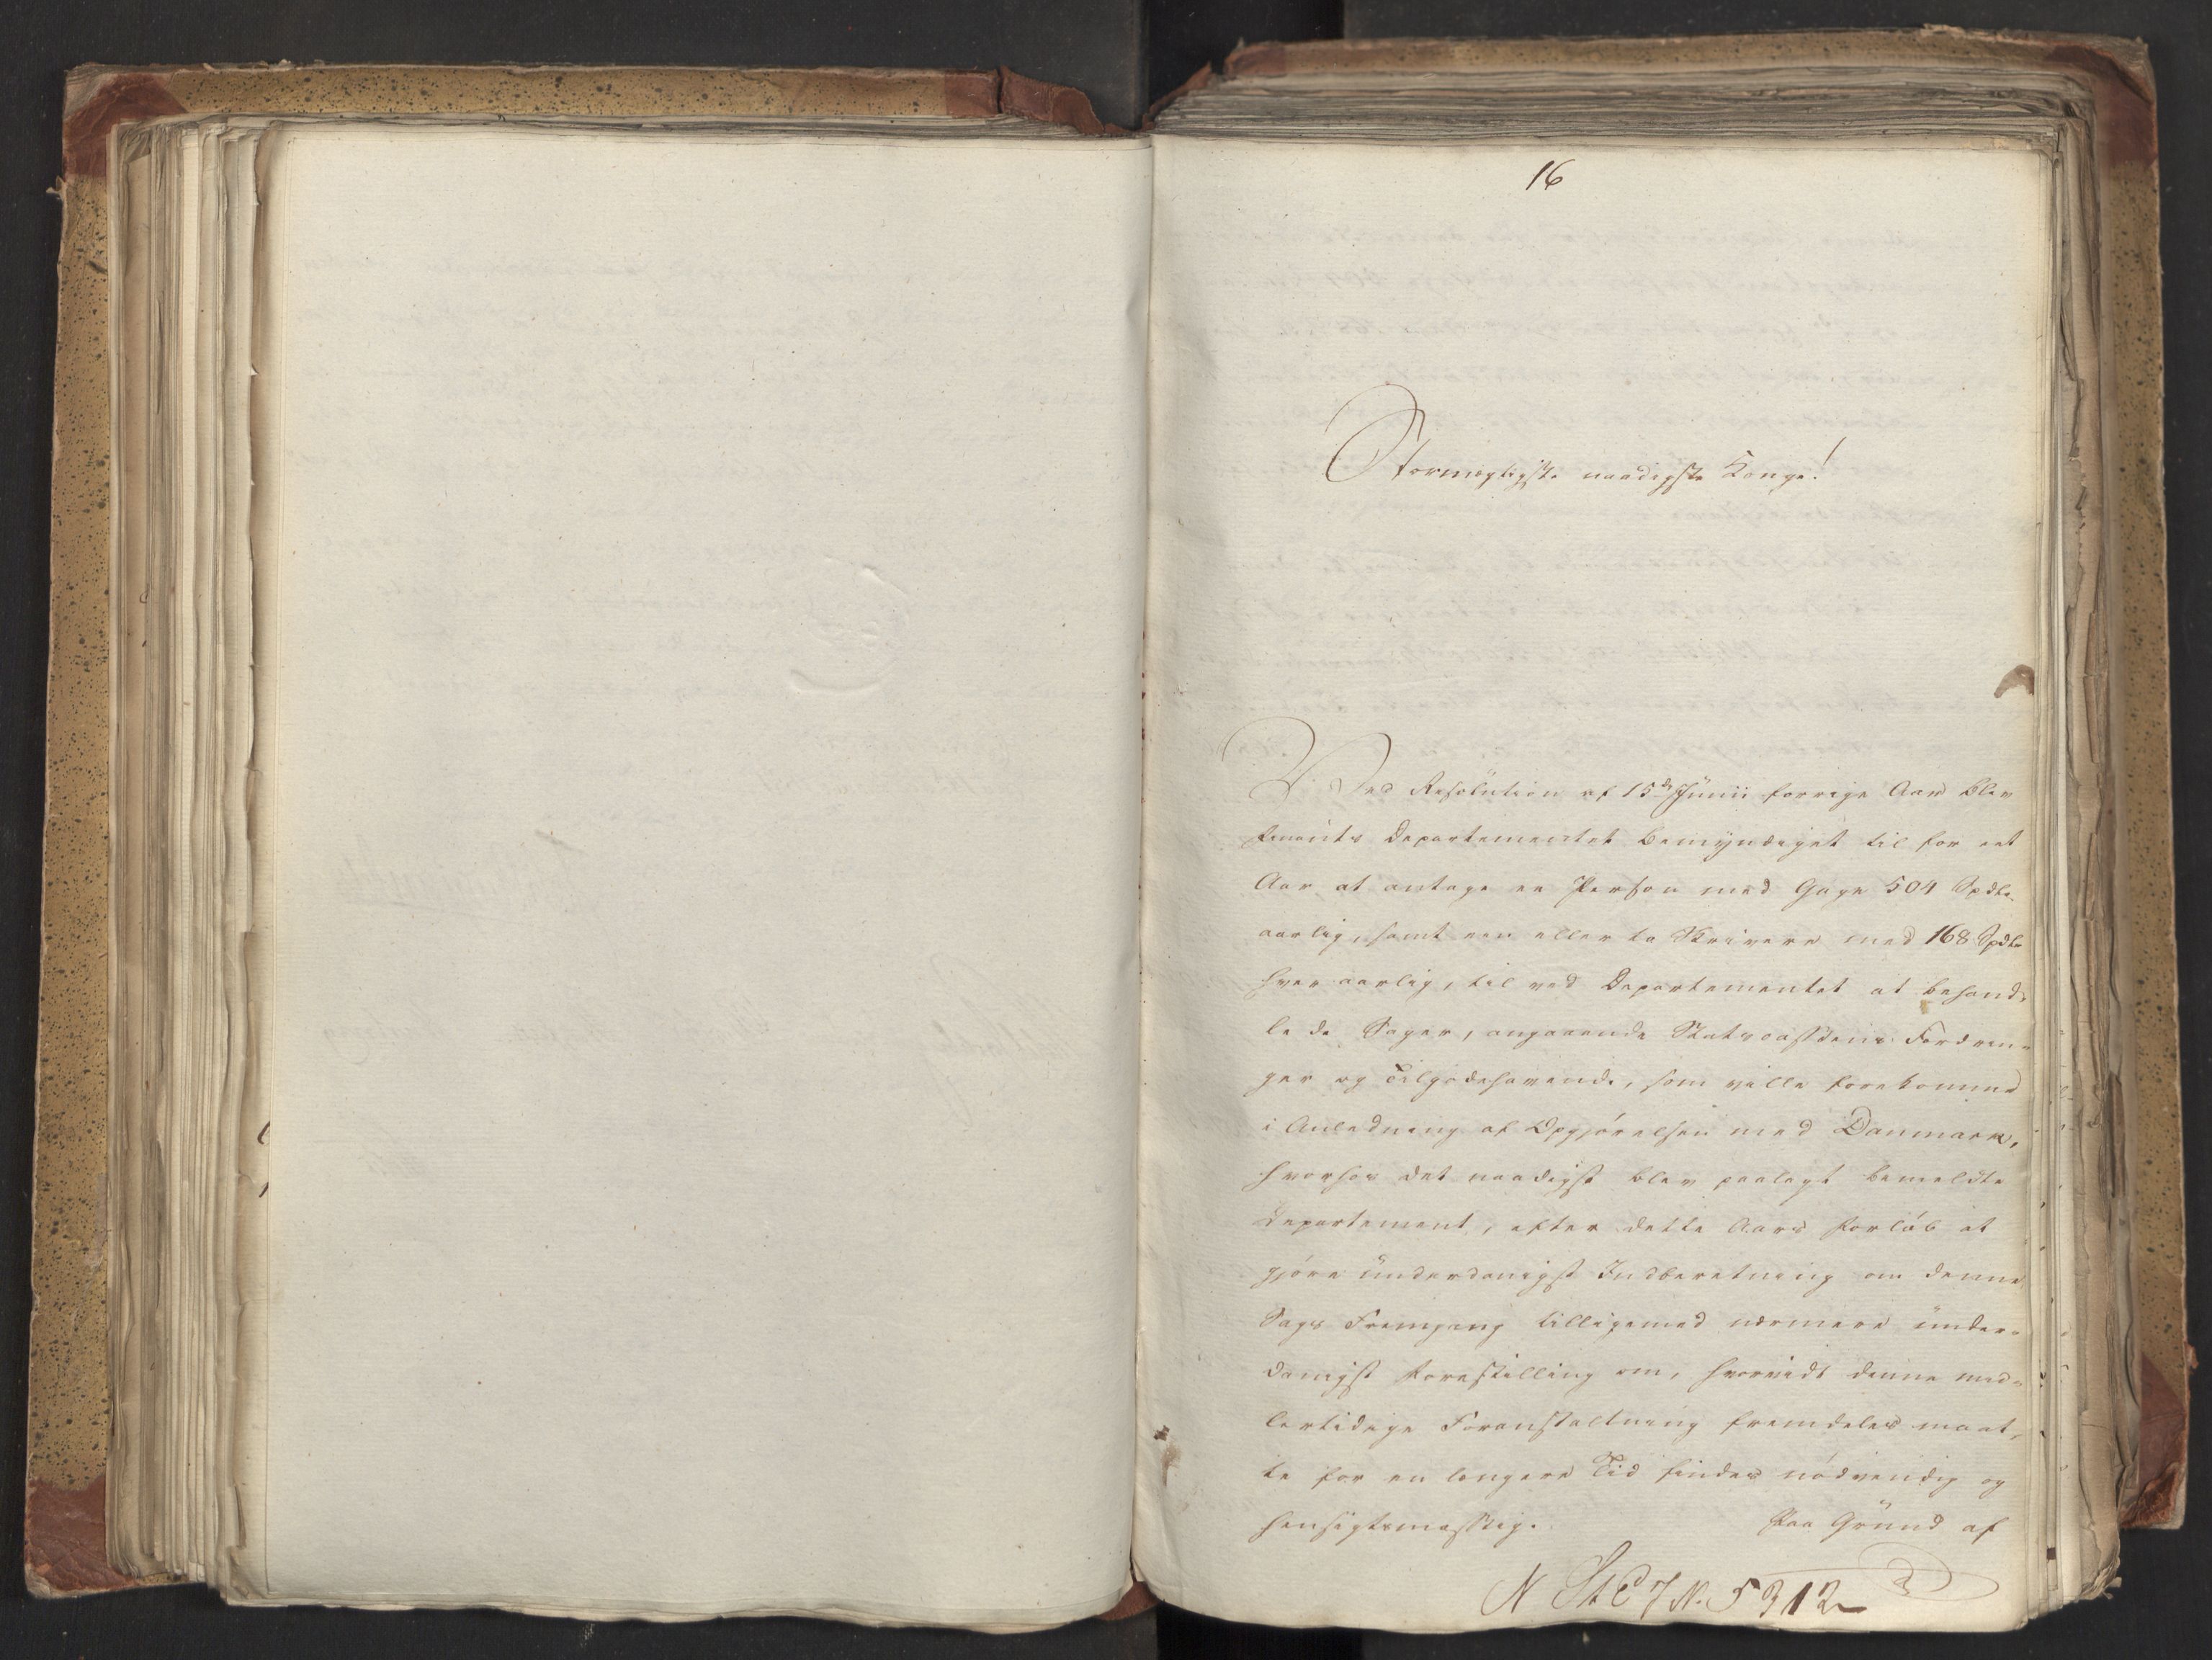 16
Stormægtigste naadigste Konge!
Ved Resolution af 15de Junii forrige Aar blev
Finants Departementet bemyndiget til for eet
Aar at antage en Person med Gage 504 Spdlr
aarlig, samt een eller to Skrivere med 168 Spdlr
hver aarlig, til ved Departementet at behand-
le de Sager, angaaende Statscassens Fordrin-
ger og Tilgodehavende, som ville forekomme
i Anledning af Opgjørelsen med Danmark,
hvorhos det naadigst blev paalagt bemeldte
Departement, efter dette Aars Forløb at
gjøre underdanigst Indberetning om denne
Sags Fremgang tilligemed nærmere under-
danigst Forestilling om, hvorvidt denne mid-
lertidige Foranstaltning fremdeles maat-
te for en længere Tid findes nødvendig og
hensigtsmæssig. Paa Grund af
N St C J N. 5312